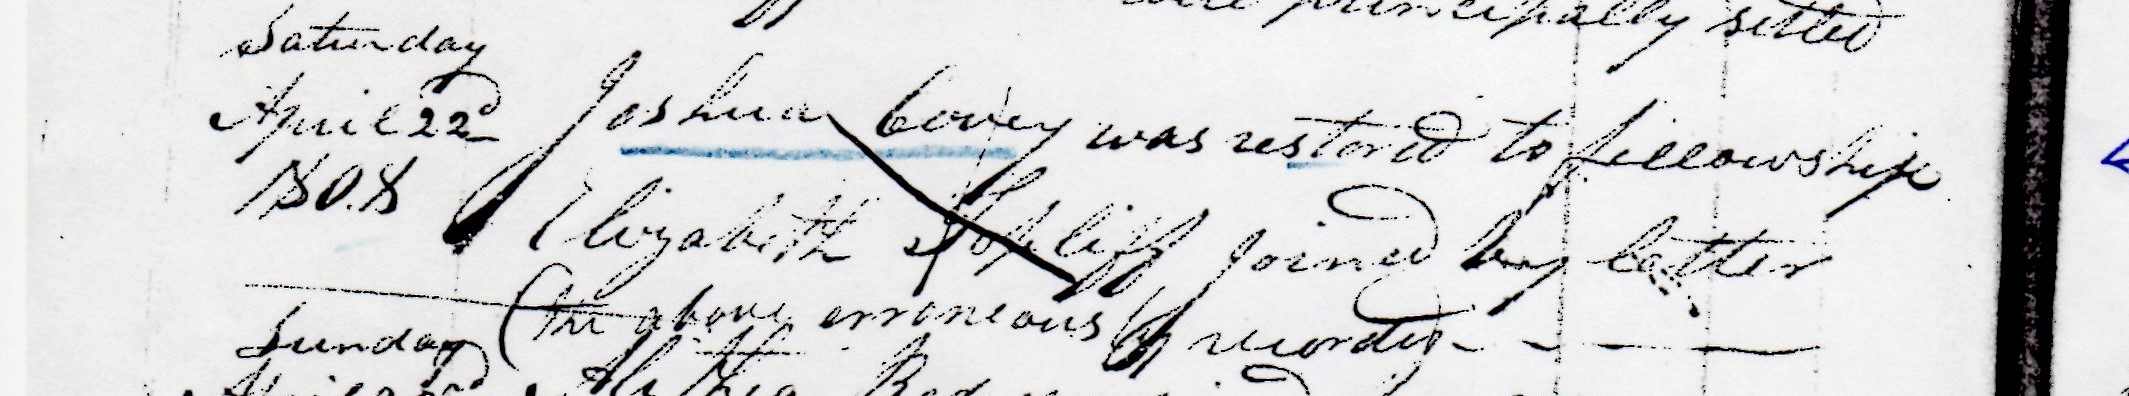 were principally setled
Saturday
April 22d Joshua Covey was restored to fellowship
Elizabeth Stopliff joined by letter
(the above erroneously recorded
Sunday